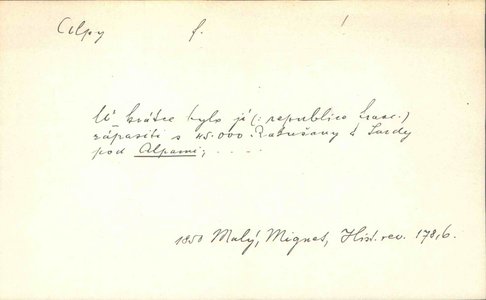 Alpy f. 1
W krátce bylo jí (: republice franc.)
zápasiti s 45.000 Rakušany a Sardy
pod Alpami; . . . .
1850 Malý, Mignet, Hist. rev. 178,6.